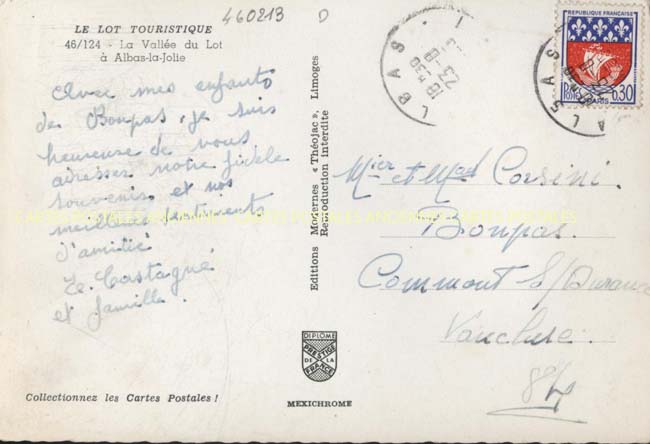 460213 D
LE LOT TOURISTIQUE
46/124 - La Vallée du Lot
à Albas-la-Jolie
Avec mes enfants
de Bonpas, je suis
heureuse de vous
adresser notre fidèle
souvenir et nos
meilleurs sentiments
d'amitié
Ze. Castagné
et famille.
Collectionnez les Cartes Postales !
Editions Modernes « Théojac », Limoges
Reproduction interdite
DIPLÔME
PRESTIGE
DE LA
FRANCE
MEXICHROME
ALBAS
18H30
23-8
REPUBLIQUE FRANÇAISE
PARIS
0,30
Mier et Mad Corsini
Bonpas.
Commont S/Durance
Vaucluse.
84
CARTES POSTALES